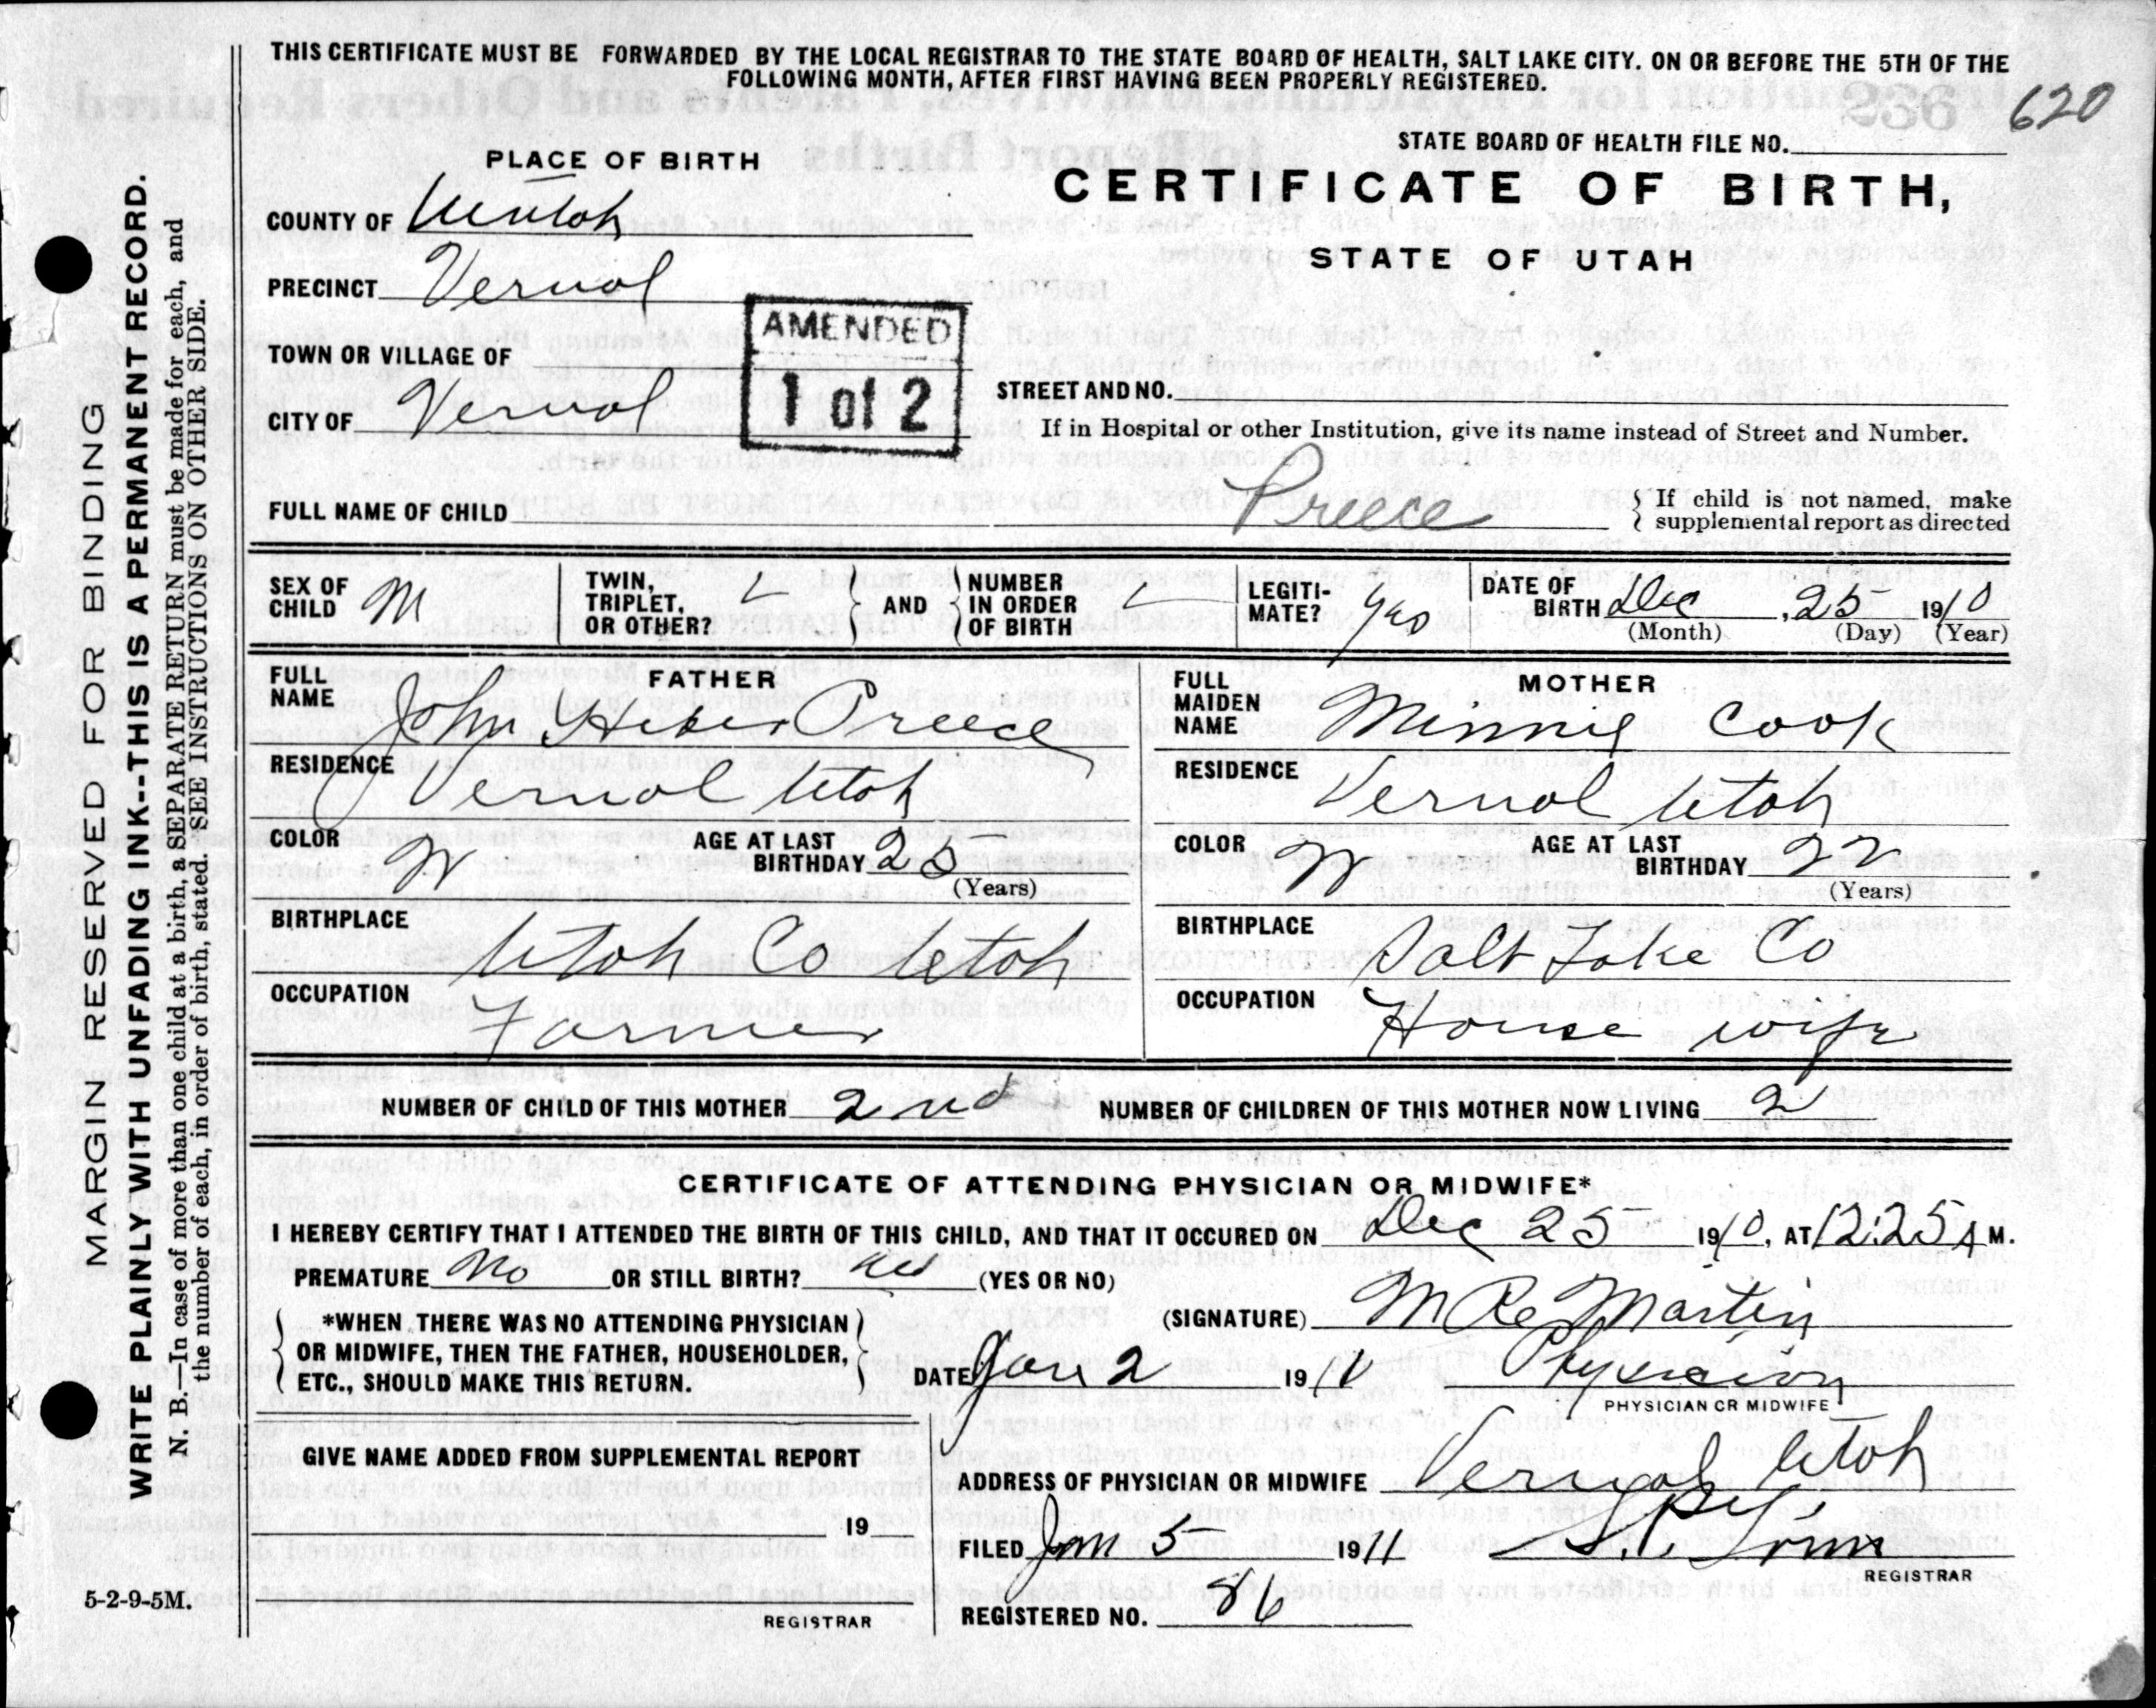 THIS CERTIFICATE MUST BE FORWARDED BY THE LOCAL REGISTRAR TO THE STATE BOARD OF HEALTH, SALT LAKE CITY. ON OR BEFORE THE 5TH OF THE
FOLLOWING MONTH, AFTER FIRST HAVING BEEN PROPERLY REGISTERED.
620
STATE BOARD OF HEALTH FILE NO.
PLACE OF BIRTH
CERTIFICATE OF BIRTH,
STATE OF UTAH
COUNTY OF Uintah
PRECINCT Vernal
AMENDED
1 of 2
TOWN OR VILLAGE OF
CITY OF Vernal
STREET AND NO.
If in Hospital or other Institution, give its name instead of Street and Number.
FULL NAME OF CHILD Preece { If child is not named, make
supplemental report as directed
SEX OF CHILD M
TWIN, TRIPLET, OR OTHER?
AND
NUMBER IN ORDER OF BIRTH
LEGITI-MATE? yes
DATE OF BIRTH Dec, 25 1910
(Month) (Day) (Year)
FATHER
FULL NAME John Heber Preece
RESIDENCE Vernal Utah
COLOR W AGE AT LAST BIRTHDAY 25
(Years)
BIRTHPLACE Utah Co Utah
OCCUPATION Farmer
MOTHER
FULL MAIDEN NAME Minnie Cook
RESIDENCE Vernal Utah
COLOR W AGE AT LAST BIRTHDAY 22
(Years)
BIRTHPLACE Salt Lake Co
OCCUPATION House wife
NUMBER OF CHILD OF THIS MOTHER 2nd NUMBER OF CHILDREN OF THIS MOTHER NOW LIVING 2
CERTIFICATE OF ATTENDING PHYSICIAN OR MIDWIFE*
I HEREBY CERTIFY THAT I ATTENDED THE BIRTH OF THIS CHILD, AND THAT IT OCCURED ON Dec 25 1910, AT 12:25 A M.
PREMATURE No OR STILL BIRTH? No (YES OR NO)
*WHEN THERE WAS NO ATTENDING PHYSICIAN
OR MIDWIFE, THEN THE FATHER, HOUSEHOLDER,
ETC., SHOULD MAKE THIS RETURN.
(SIGNATURE) Martin
DATE Jan 2 1911 Physician
PHYSICIAN OR MIDWIFE
GIVE NAME ADDED FROM SUPPLEMENTAL REPORT
19
REGISTRAR
ADDRESS OF PHYSICIAN OR MIDWIFE Vernal Utah
FILED Jan 5 1911
REGISTRAR
REGISTERED NO. 86
5-2-9-5M.
MARGIN RESERVED FOR BINDING
WRITE PLAINLY WITH UNFADING INK--THIS IS A PERMANENT RECORD.
N. B.—In case of more than one child at a birth, a SEPARATE RETURN must be made for each, and
the number of each, in order of birth, stated. SEE INSTRUCTIONS ON OTHER SIDE.